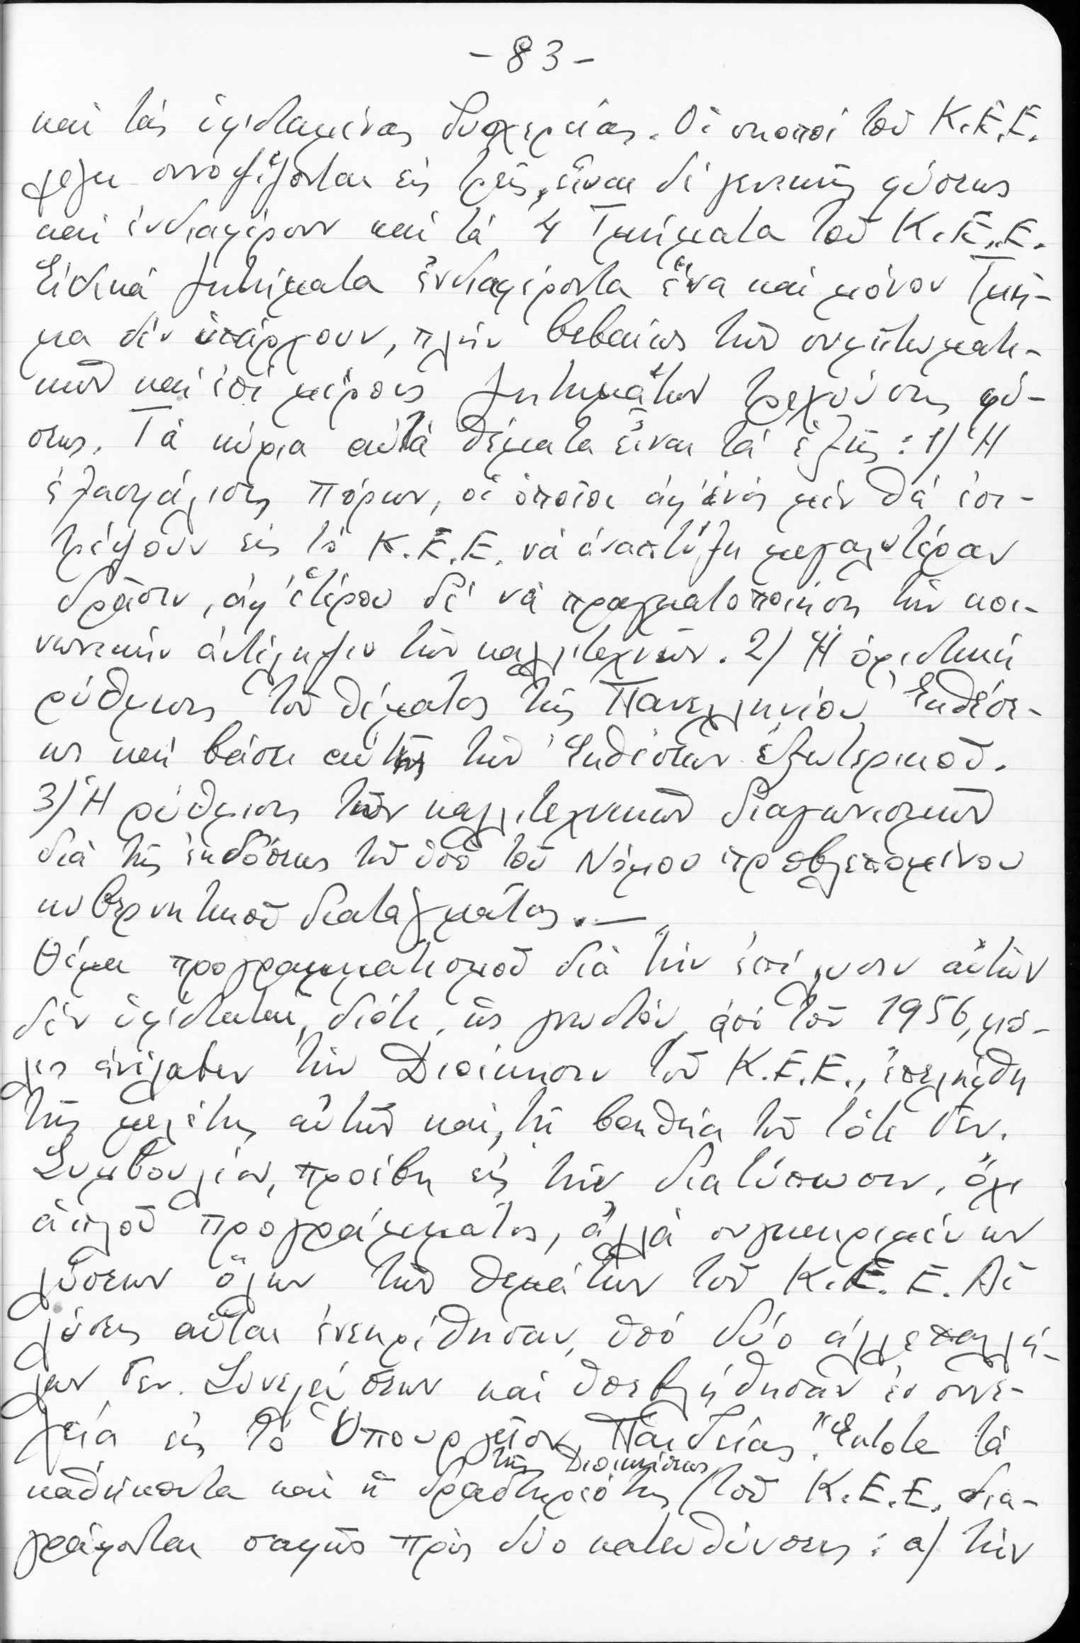 -83-
καὶ τὰς ὑφισταμένας δυσχερείας. Οἱ σκοποὶ τοῦ Κ.Ε.Ε.
συνοψίζονται εἰς τρεῖς, εἶναι δὲ γενικῆς φύσεως
καὶ ἐνδιαφέρουν καὶ τὰ 4 Τμήματα τοῦ Κ.Ε.Ε.
Εἰδικὰ ζητήματα ἐνδιαφέροντα ἕνα καὶ μόνον Τμῆ-
μα δὲν ὑπάρχουν, πλὴν βεβαίως τῶν συμπτωματι-
κῶν καὶ ἐπὶ μέρους ζητημάτων τρεχούσης φύ-
σεως. Τὰ κύρια αὐτὰ θέματα εἶναι τὰ ἑξῆς: 1) Ἡ
ἐξασφάλισις πόρων, οἱ ὁποῖοι ἀφ' ἑνὸς μὲν θὰ ἐπι-
τρέψουν εἰς τὸ Κ.Ε.Ε. νὰ ἀναπτύξῃ μεγαλυτέραν
δρᾶσιν, ἀφ' ἑτέρου δὲ νὰ πραγματοποιήσῃ τὴν κοι-
νωνικὴν ἀντίληψιν τῶν καλλιτεχνῶν. 2) Ἡ ὁριστικὴ
ρύθμισις τοῦ θέματος τῆς Πανελληνίου Ἐκθέσε-
ως καὶ βάσει αὐτῆς τῶν Ἐκθέσεων ἐξωτερικοῦ.
3) Ἡ ρύθμισις τῶν καλλιτεχνικῶν διαγωνισμῶν
διὰ τῆς ἐκδόσεως τοῦ ὑπὸ τοῦ Νόμου προβλεπομένου
κυβερνητικοῦ διατάγματος.—
Θέμα προγραμματισμοῦ διὰ τὴν ἐπίλυσιν αὐτῶν
δὲν ὑφίσταται, διότι, ὡς γνωστόν, ἀπὸ τοῦ 1956, μό-
λις ἀνέλαβεν τὴν Διοίκησιν τοῦ Κ.Ε.Ε., ἐπελήφθη
τῆς μελέτης αὐτῶν καί, τῇ βοηθείᾳ τοῦ τότε Γεν.
Συμβουλίου, προέβη εἰς τὴν διατύπωσιν, ὄχι
ἁπλοῦ προγράμματος, ἀλλὰ συγκεκριμένων
λύσεων ὅλων τῶν θεμάτων τοῦ Κ.Ε.Ε. Αἱ
λύσεις αὗται ἐνεκρίθησαν ὑπὸ δύο ἀλλεπαλλή-
λων Γεν. Συνελεύσεων καὶ ὑπεβλήθησαν ἐν συνε-
χείᾳ εἰς τὸ Ὑπουργεῖον Παιδείας. Ἔκτοτε τὰ
καθήκοντα καὶ ἡ δραστηριότης τῆς Διοικήσεως τοῦ Κ.Ε.Ε. δια-
γράφονται σαφῶς πρὸς δύο κατευθύνσεις: α) τὴν